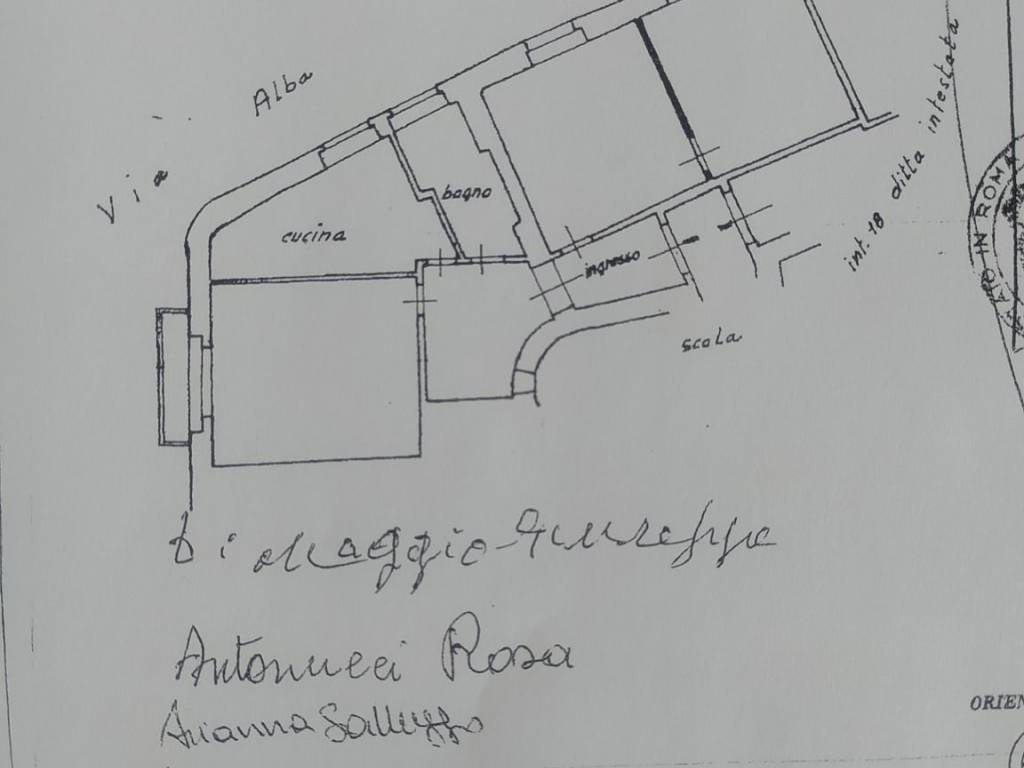 Via Alba
int. 18 ditta intestata
IN ROMA
bagno
cucina
ingresso
scala
Di Maggio Giuseppa
Antonucci Rosa
Arianna Galluzzo
ORIEN